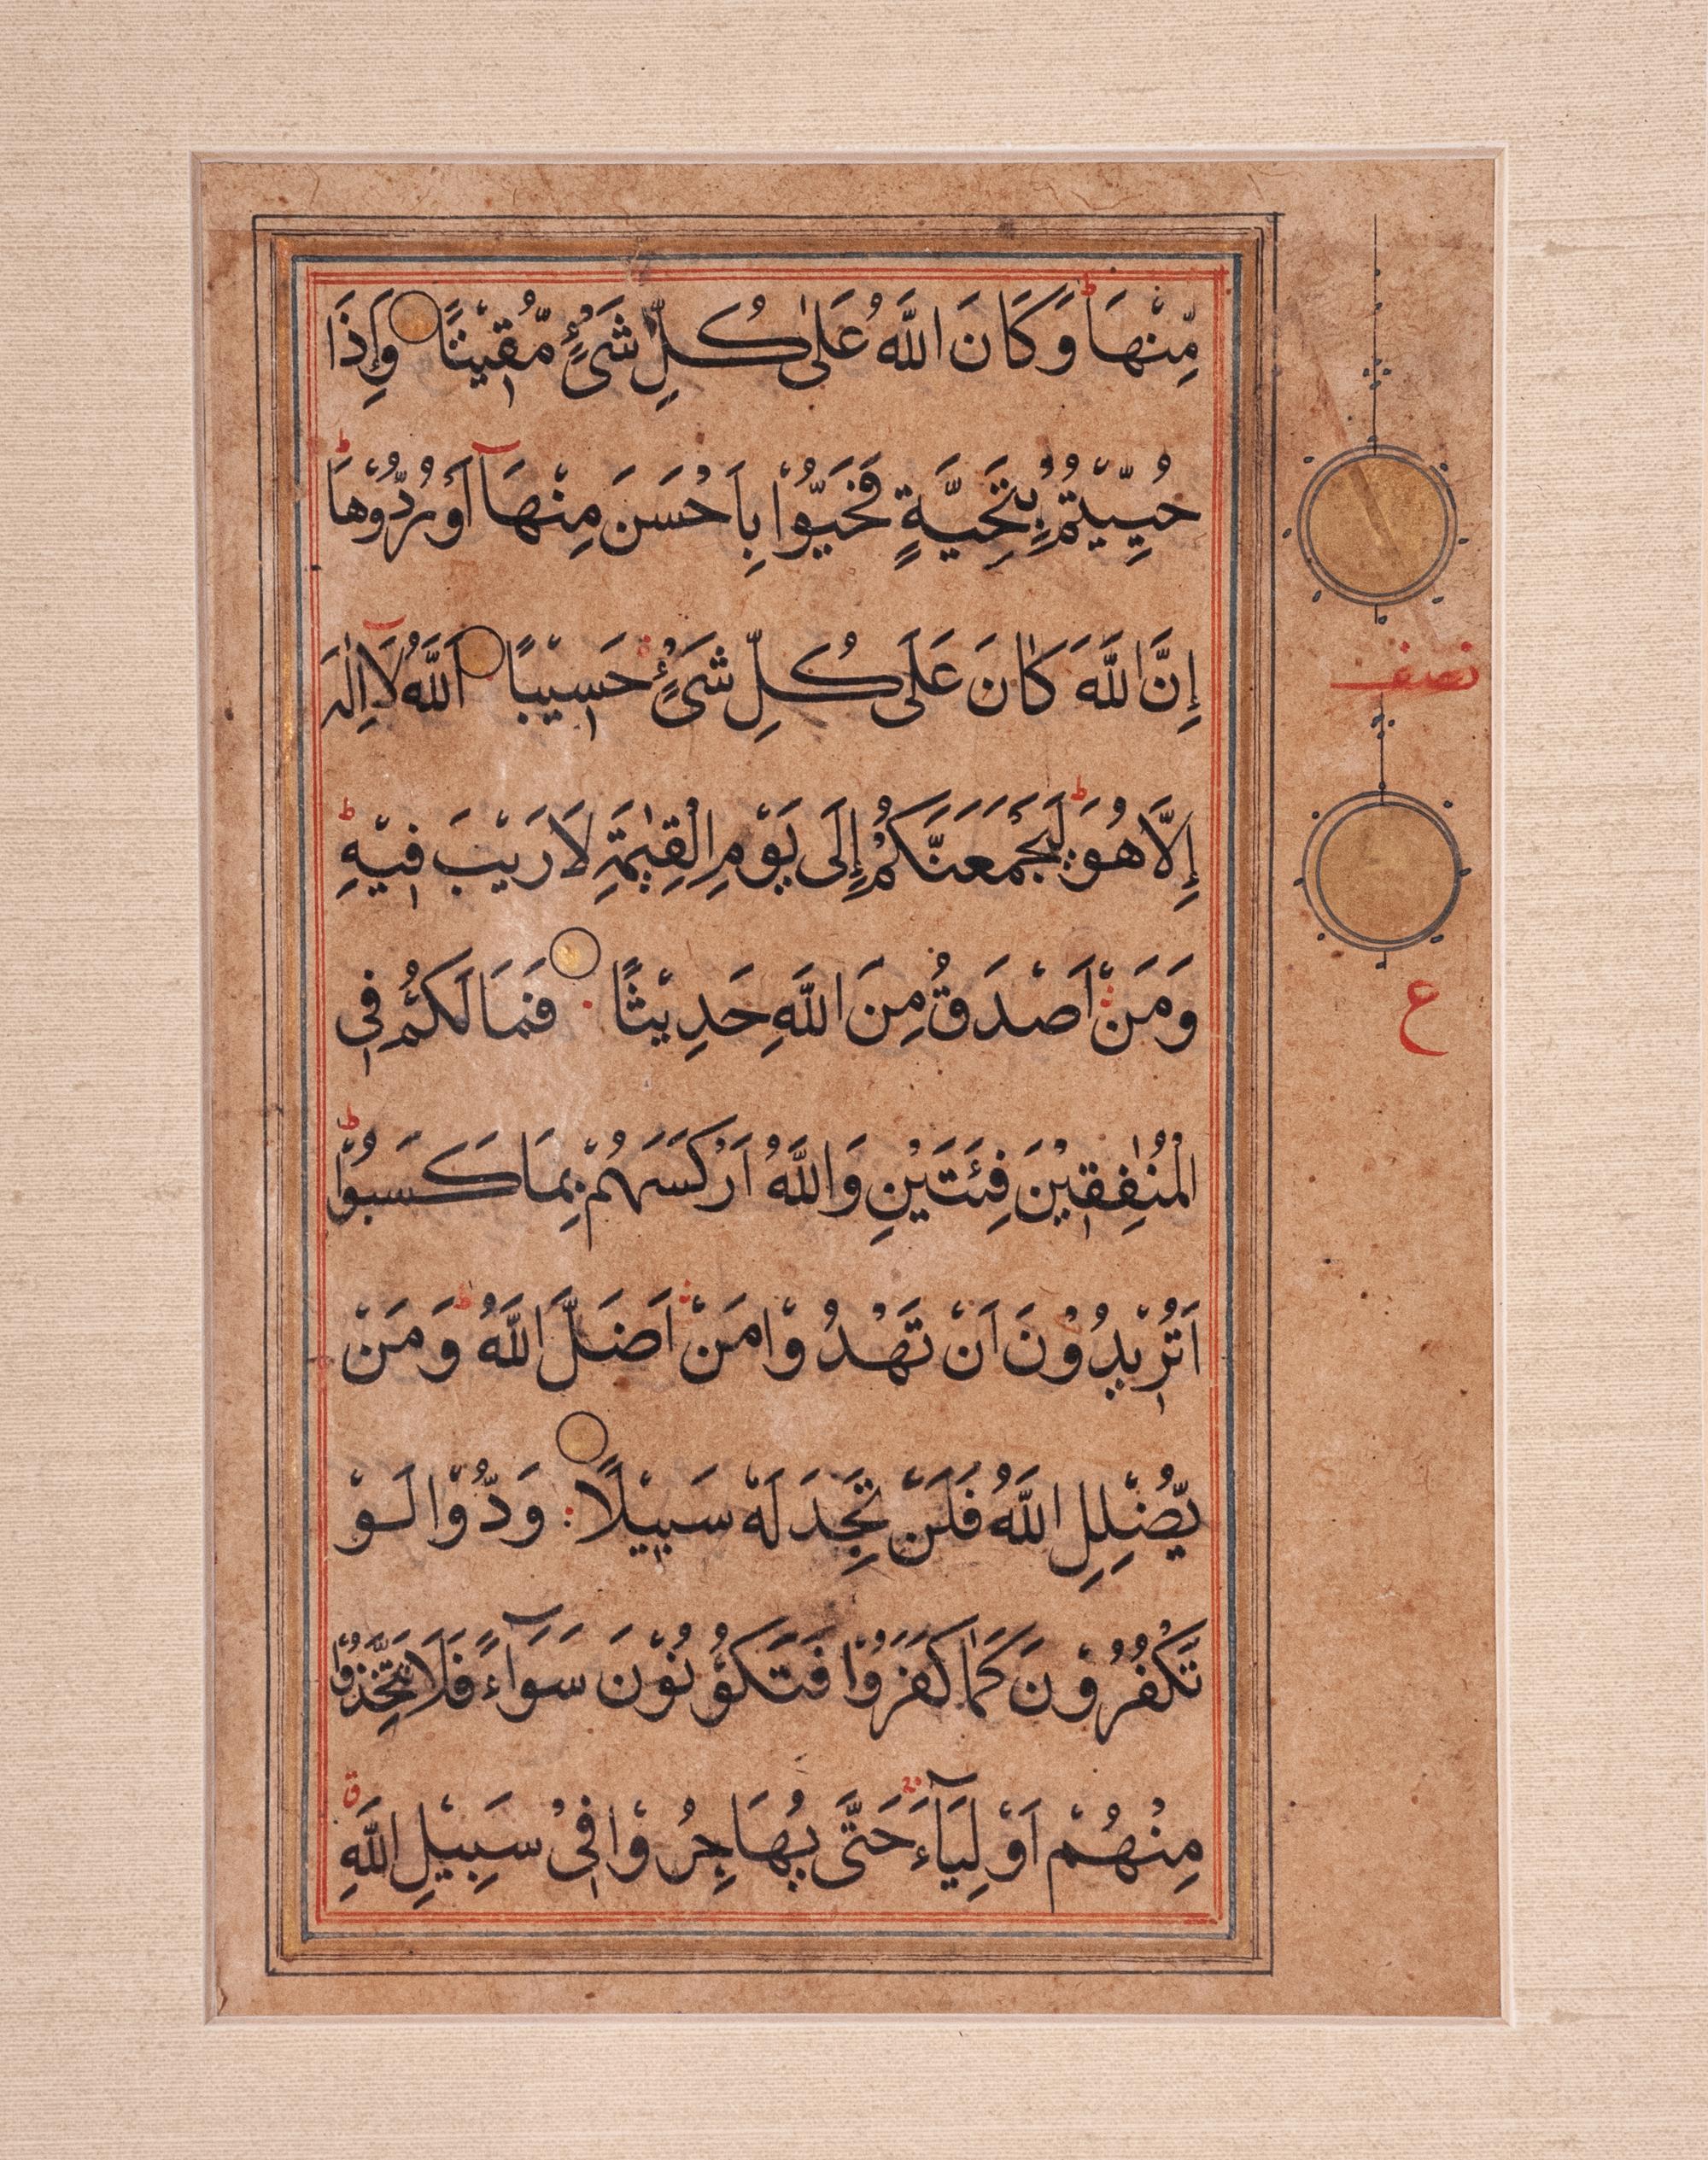 مِّنْهَا ؕ وَكَانَ اللّٰهُ عَلٰى كُلِّ شَیْءٍ مُّقِیْتًا وَاِذَا
حُیِّیْتُمْ بِتَحِیَّةٍ فَحَیُّوْا بِاَحْسَنَ مِنْهَاۤ اَوْ رُدُّوْهَا ؕ
اِنَّ اللّٰهَ كَانَ عَلٰى كُلِّ شَیْءٍ حَسِیْبًا اَللّٰهُ لَاۤ اِلٰهَ
اِلَّا هُوَ ؕ لَیَجْمَعَنَّكُمْ اِلٰى یَوْمِ الْقِیٰمَةِ لَا رَیْبَ فِیْهِ ؕ
وَمَنْ اَصْدَقُ مِنَ اللّٰهِ حَدِیْثًا فَمَا لَكُمْ فِی
الْمُنٰفِقِیْنَ فِئَتَیْنِ وَاللّٰهُ اَرْكَسَهُمْ بِمَا كَسَبُوْا ؕ
اَتُرِیْدُوْنَ اَنْ تَهْدُوْا مَنْ اَضَلَّ اللّٰهُ ؕ وَمَنْ
یُّضْلِلِ اللّٰهُ فَلَنْ تَجِدَ لَهٗ سَبِیْلًا وَدُّوْا لَوْ
تَكْفُرُوْنَ كَمَا كَفَرُوْا فَتَكُوْنُوْنَ سَوَآءً فَلَا تَتَّخِذُوْا
مِنْهُمْ اَوْلِیَآءَ حَتّٰى یُهَاجِرُوْا فِیْ سَبِیْلِ اللّٰهِ ق
نصف
ع